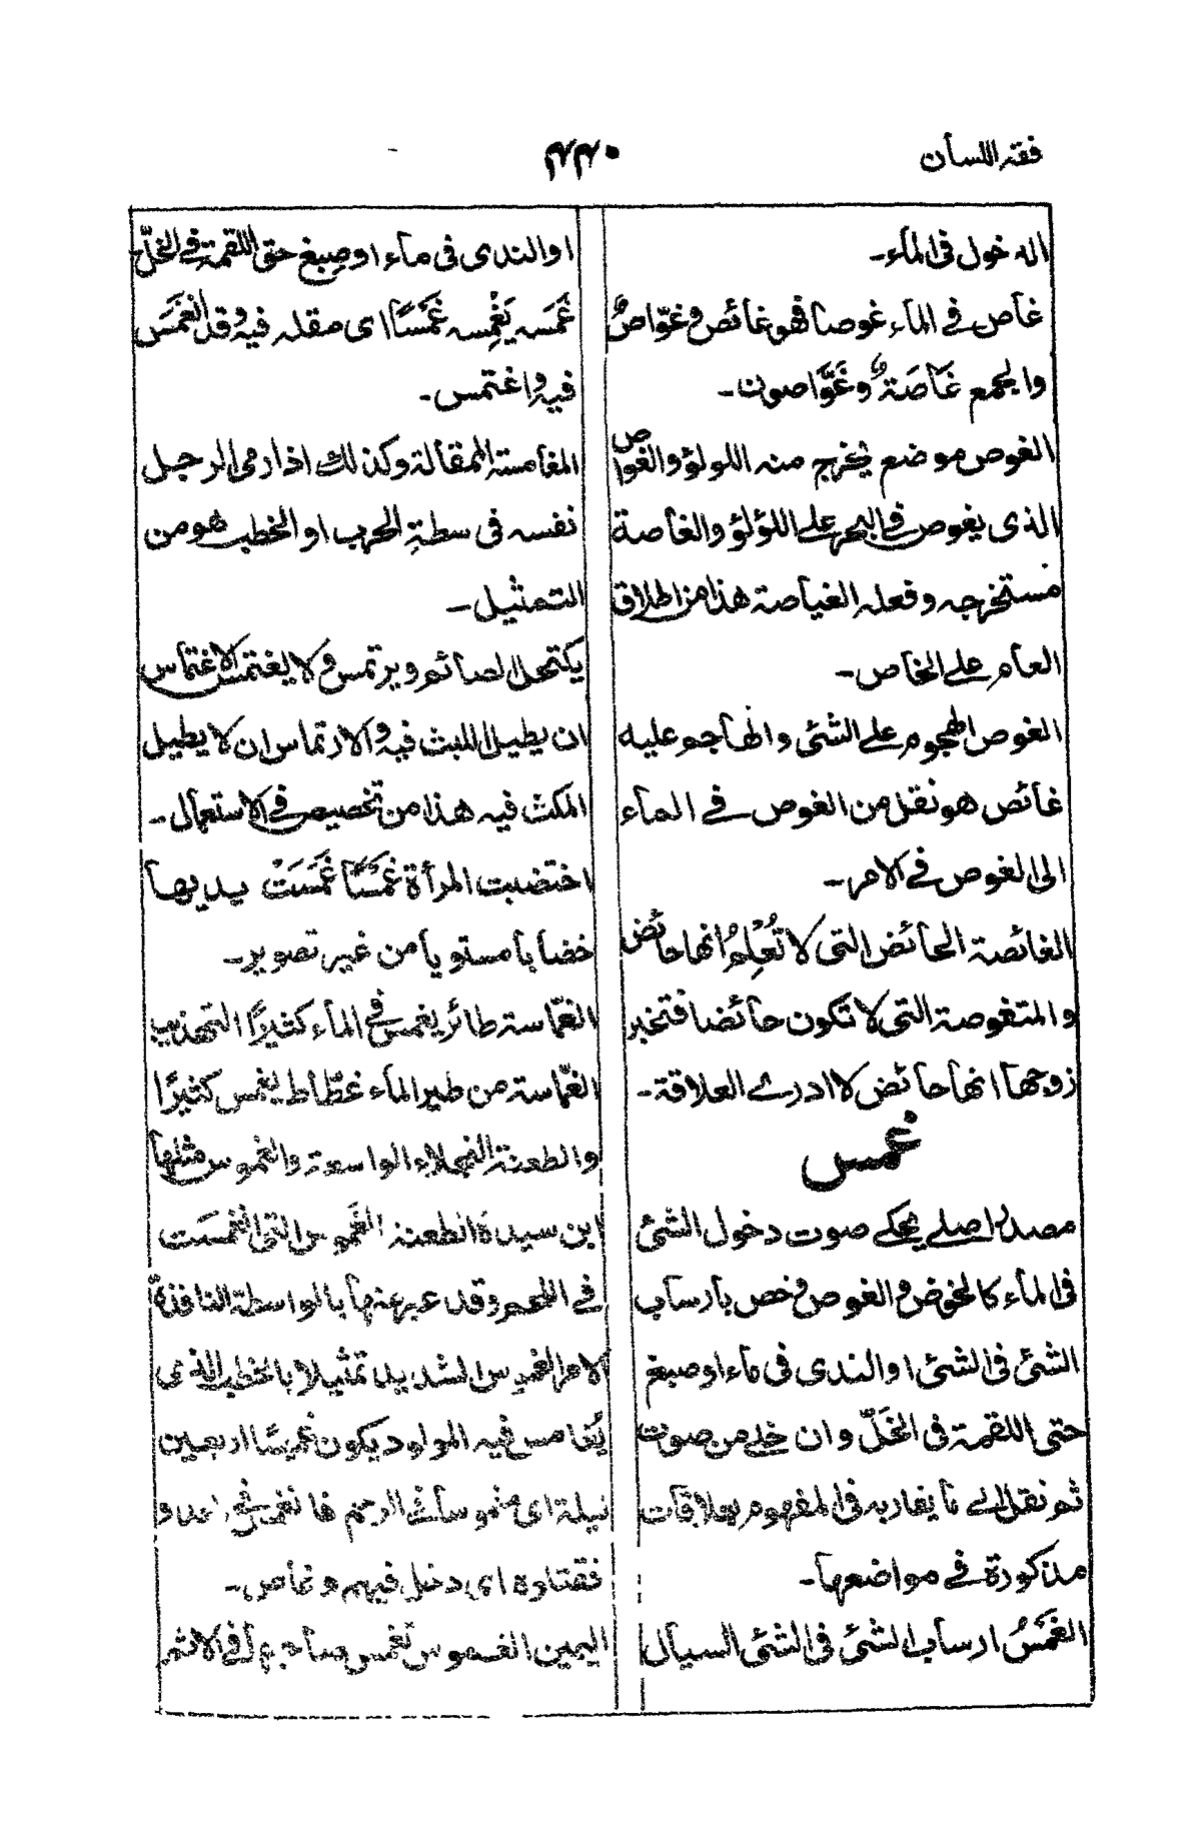 فقه اللسان
٤٤٠
الدخول فى الماء۔
غاص فى الماء غوصا فهو غائص وغوّاصٌ
والجمع غَاصَةٌ وغَوَّاصون۔
الغوص موضع يخرج منه اللولؤ والغواص
الذى يغوص فى البحر على اللؤلؤ والغاصة
مستخرجه وفعله الغياصة هذا من اطلاق
العام على الخاص۔
الغوص الهجوم على الشئى والهاجم عليه
غائص هو نقل من الغوص فى الماء
الى الغوص فى الامر۔
الغائصة الحائض التى لا تُعْلِمُ انها حائض
والمتغوصة التى لا تكون حائضا فتخبر
زوجها انها حائض لا ادرى العلاقة۔
غمس
مصدر اصلى يحكى صوت دخول الشئى
فى الماء كالخوض والغوص وخص بارساب
الشئى فى الشئى او الندى فى ماء او صبغ
حتى اللقمة فى الخَلّ وان خلى من صوت
ثم نقل الى ما يقاربه فى المفهوم بعلاقات
مذكورة فى مواضعها۔
الغَمْسُ ارساب الشئى فى الشئى السيال
او الندى فى ماء او صِبغ حتى اللقمة فى الخلّ
غَمَسَه يَغْمِسه غَمْسًا اى مقله فيه وقد انغَمَس
فيه واغتمس۔
المغامسة المقالة وكذلك اذا رمى الرجل
نفسه فى سطةِ الحرب او الخطب هو من
التمثيل۔
يكتحل الصائم ويرتمس ولا يغتمس الاغتماس
ان يطيل اللبث فيه والارتماس ان لا يطيل
المكث فيه هذا من تخصيص فى الاستعمال۔
اختضبت المرأة غَمْسًا غَمَسَتْ يديها
خضابا مستويا من غير تصوير۔
الغمّاسة طائر يغمس فى الماء كثيرًا التهذيب
الغمّاسة من طير الماء غطّاط يغمس كثيرًا
والطعنة النجلاء الواسعة والغموس مثلها
ابن سيدة الطعنة الغَموس التى انغمسَت
فى اللحم وقد عبر عنها بالواسطة النافذة
الامر الغموس الشديد تمثيلا بالخطب الذى
يُغامس فيه المولود يكون غميسًا اربعين
ليلة اى مغموسا فى الرحم فانغمس فى العدو
فقتلوه اى دخل فيهم وغاص۔
اليمين الغموس تغمس صاحبها فى الاثم